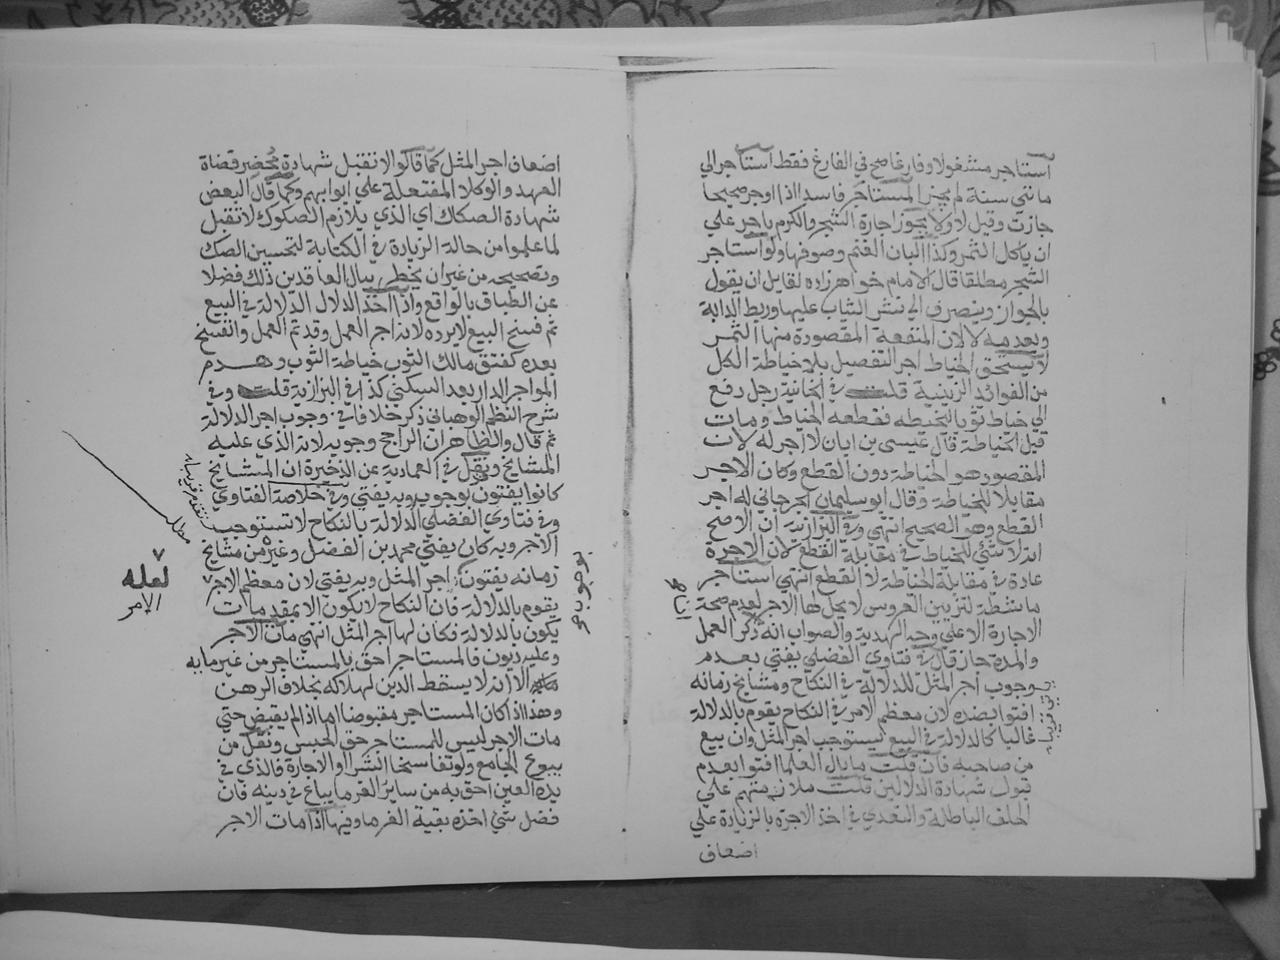 استاجر مشغولا وفارغا صح في الفارغ فقط استاجر الي
مائتي سنة لم يجز المستاجر فاسدا اذا اوجر صحيحا
جازت وقيل لا ولا يجوز اجارة الشجر والكرم باجر علي
ان ياكل الثمر وكذا البان الغنم وصوفها ولو استاجر
الشجر مطلقا قال الامام خواهرزاده لقايل ان يقول
بالجواز وينصرف الي نشر الثياب عليها وربط الدابة
وبعدمه لا لان المنفعة المقصودة منها الثمر
لا يستحق الخياط اجر التفصيل بلا خياطة الكل
من الفوائد الزينية قلت في الخانية رجل دفع
الي خياط ثوبا ليخيطه فقطعه الخياط ومات
قبل الخياطة قال عيسي بن ابان لا اجر له لان
المقصود هو الخياطة دون القطع وكان الاجر
مقابلا للخياطة وقال ابو سليمان الجرجاني له اجر
القطع وهو الصحيح انتهي وفي البزازية ان الاصح
انه لا شئ للخياط في مقابلة القطع لان الاجرة
عادة في مقابلة الخياطة لا القطع انتهي استاجر
ماشطة لتزيين العروس لا يحل لها الاجر لعدم صحة
الاجارة الا علي وجه الهدية والصواب انه ذكر العمل
والمدة جاز قال في فتاوي الفضلي يفتي بعدم
وجوب اجر المثل للدلالة في النكاح ومشايخ زمانه
افتوا بضده لان معظم الامر في النكاح يقوم بالدلالة
غالبا كالدلالة في البيع يستوجب اجر المثل وان بيع
من صاحبه فان قلت ما بال العلما افتوا بعدم
قبول شهادة الدلالين قلت ملازمتهم علي
الحلف الباطلة والتعدي في اخذ الاجرة بالزيادة علي
اضعاف
اضعاف اجر المثل كما قالوا لا تقبل شهادة محضر قضاة
العهد والوكلا المفتعلة علي ابوابهم وكما قال البعض
شهادة الصكاك اي الذي يلازم الصكوك لا تقبل
لما علموا من حالة الزيادة في الكتابة لتحسين الصك
وتصحيحه من غير ان يخطر ببال العاقدين ذلك فضلا
عن الطباق بالواقع واذا اخذ الدلال الدلالة في البيع
ثم فسخ البيع لا يرده لانه اجر العمل وقد تم العمل وانفسخ
بعده كفتق مالك الثوب خياطة الثوب وهدم
المواجر الدار بعد السكني كذا في البزازية قلت وفي
شرح النظم الوهباني ذكر خلافا في وجوب اجر الدلالة
ثم قال والظاهر ان الراجح وجوبه لانه الذي عليه
المشايخ ونقل في العمادية عن الذخيرة ان المشايخ
كانوا يفتون بوجوبه وبه يفتي وفي خلاصة الفتاوي
وفي فتاوي الفضلي الدلالة بالنكاح لا تستوجب
الاجر وبه كان يفتي محمد بن الفضل وغيره من مشايخ
زمانه يفتون اجر المثل وبه يفتي لان معظم الاجر
يقوم بالدلالة فان النكاح لا يكون الا بمقدمات
يكون بالدلالة فكان لها اجر المثل انتهي مات الاجر
وعليه ديون فالمستاجر احق بالمستاجر من غيرمايه
الا انه لا يسقط الدين لهلاكه بخلاف الرهن
وهذا اذا كان المستاجر مقبوضا اما اذا لم يقبض حتي
مات الاجر ليس للمستاجر حق الحبس ونقل من
بيوع الجامع ولو تفاسخا الشرا او الاجارة فالذي في
يده العين احق به من ساير الغرما يباع في دينه فان
فضل شئ اخذه بقية الغرما وفيها اذا مات الاجر
بوجوب
لعله
الامر
مطلب